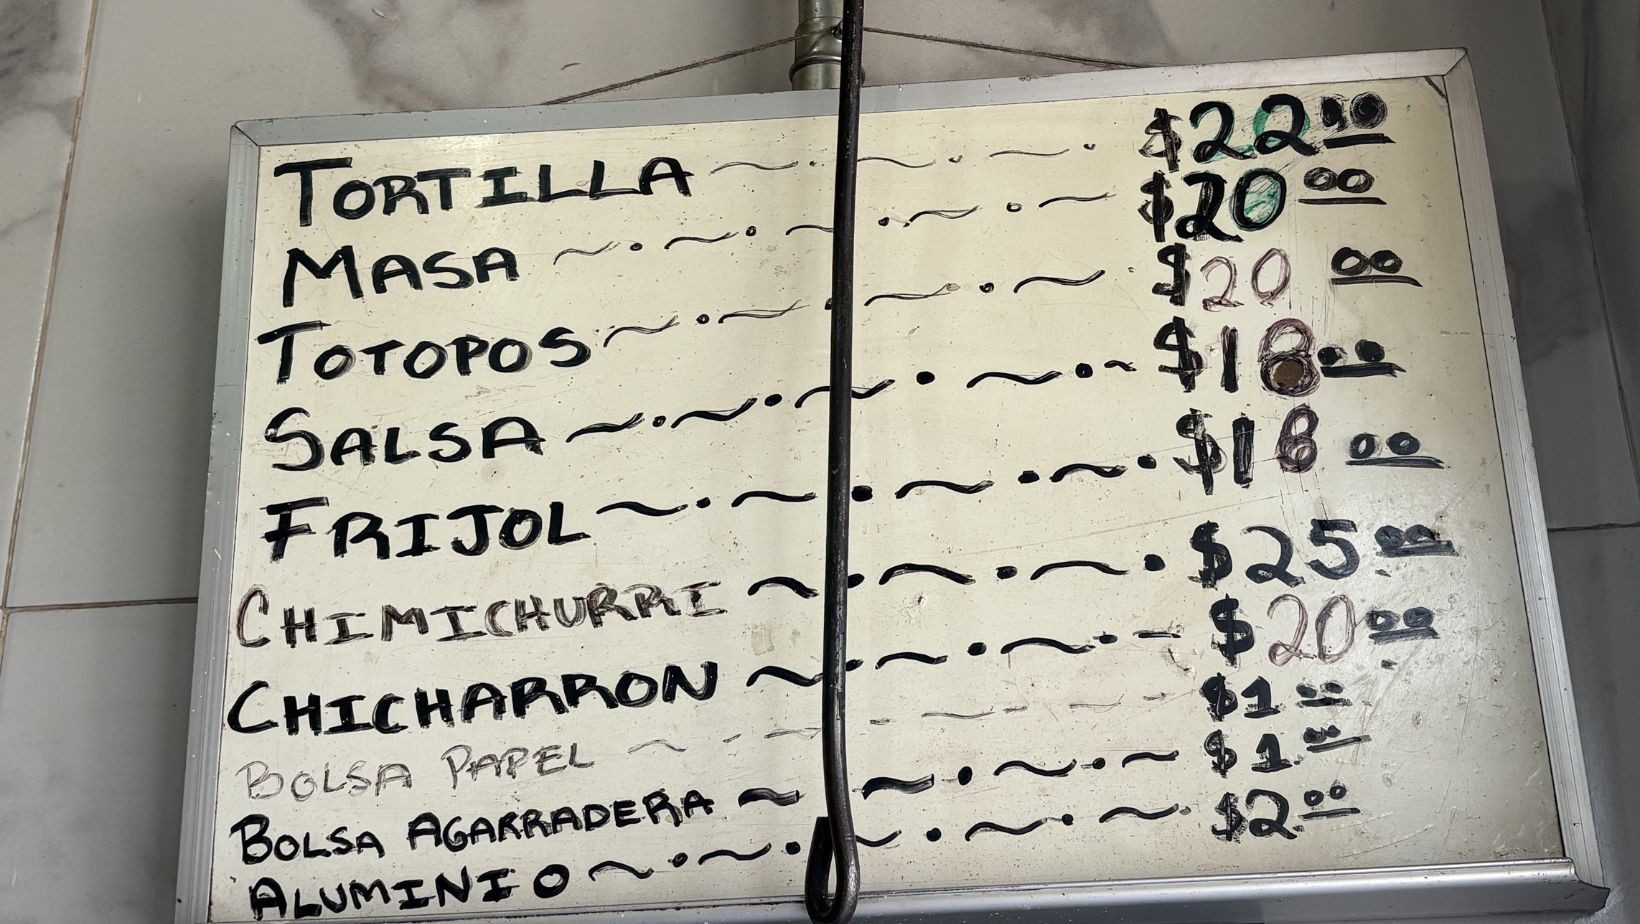 TORTILLA ~ . ~ . ~ . $22.00
MASA ~ . ~ . ~ . ~ . ~ $20.00
TOTOPOS ~ . ~ . ~ . ~ $20.00
SALSA ~ . ~ . ~ . ~ . ~ $18.00
FRIJOL ~ . ~ . ~ . ~ . $18.00
CHIMICHURRI ~ . ~ . ~ . $25.00
CHICHARRON ~ . ~ . ~ . - $20.00
BOLSA PAPEL ~ - - - - - - $1.00
BOLSA AGARRADERA ~ ~ . ~ . ~ $1.00
ALUMINIO ~ . ~ . ~ . ~ . ~ . $2.00